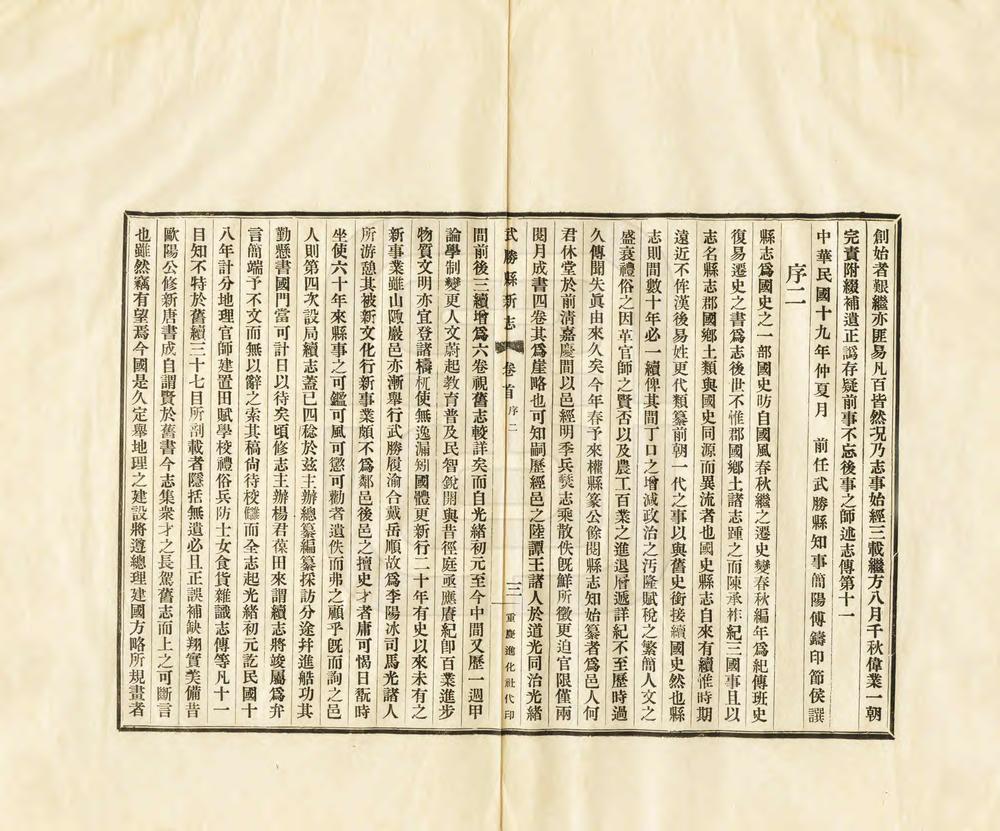 創始者艱繼亦匪易凡百皆然況乃志事始經三載繼方八月千秋偉業一朝
完責附綴補遺正譌存疑前事不忘後事之師述志傳第十一
中華民國十九年仲夏月 前任武勝縣知事簡陽傅鑄印節侯譔
序二
縣志爲國史之一部國史昉自國風春秋繼之遷史變春秋編年爲紀傳班史
復易遷史之書爲志後世不惟郡國鄉土諸志踵之而陳承祚紀三國事且以
志名縣志郡國鄉土類與國史同源而異流者也國史縣志自來有續惟時期
遠近不侔漢後易姓更代類纂前朝一代之事以與舊史銜接續國史然也縣
志則間數十年必一續俾其間丁口之增減政治之汚隆賦稅之繁簡人文之
盛衰禮俗之因革官師之賢否以及農工百業之進退屑遞詳紀不至歷時過
久傳聞失眞由來久矣今年春予來權縣篆公餘閱縣志知始纂者爲邑人何
君休堂於前淸嘉慶間以邑經明季兵燹志乘散佚旣鮮所徵更迫官限僅兩
閱月成書四卷其爲崖略也可知嗣歷經邑之陸譚王諸人於道光同治光緖
武勝縣新志 卷首 序二 三 重慶進化社代印
間前後三續增爲六卷視舊志較詳矣而自光緖初元至今中間又歷一週甲
論學制變更人文蔚起敎育普及民智銳開與昔徑庭亟應賡紀卽百業進步
物質文明亦宜登諸檮杌使無逸漏矧國體更新行二十年有史以來未有之
新事業雖山陬巖邑亦漸舉行武勝屐渝合戴岳順故爲李陽冰司馬光諸人
所游憩其被新文化行新事業頗不爲鄰邑後邑之擅史才者庸可愒日翫時
坐使六十年來縣事之可鑑可風可懲可勸者遺佚而弗之顧乎旣而詢之邑
人則第四次設局續志蓋已四稔於玆主辦總纂編纂採訪分途幷進皓功其
勤懸書國門當可計日以待矣頃修志主辦楊君葆田來謂續志將竣屬爲弁
言簡端予不文而無以辭之索其稿尙待校讎而全志起光緖初元訖民國十
八年計分地理官師建置田賦學校禮俗兵防士女食貨雜識志傳等凡十一
目知不特於舊續三十七目所剖載者隱括無遺必且正誤補缺翔實美備昔
歐陽公修新唐書成自謂賢於舊書今志集衆才之長駕舊志而上之可斷言
也雖然竊有望焉今國是久定舉地理之建設將遵總理建國方略所規畫者